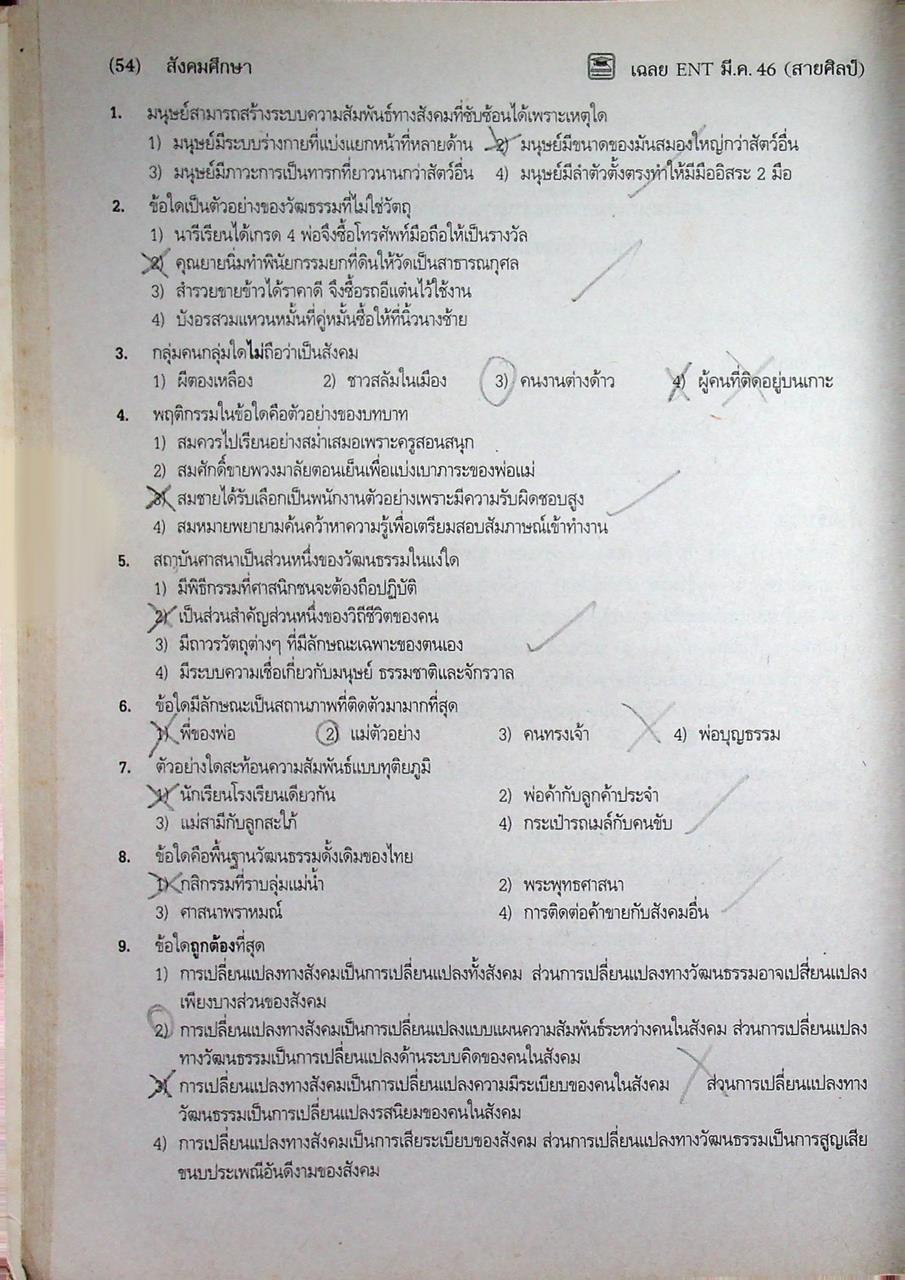 (54) สังคมศึกษา เฉลย ENT มี.ค. 46 (สายศิลป์)
1. มนุษย์สามารถสร้างระบบความสัมพันธ์ทางสังคมที่ซับซ้อนได้เพราะเหตุใด
1) มนุษย์มีระบบร่างกายที่แบ่งแยกหน้าที่หลายด้าน 2) มนุษย์มีขนาดของมันสมองใหญ่กว่าสัตว์อื่น
3) มนุษย์มีภาวะการเป็นทารกที่ยาวนานกว่าสัตว์อื่น 4) มนุษย์มีลำตัวตั้งตรงทำให้มีมืออิสระ 2 มือ
2. ข้อใดเป็นตัวอย่างของวัฒธรรมที่ไม่ใช่วัตถุ
1) นารีเรียนได้เกรด 4 พ่อจึงซื้อโทรศัพท์มือถือให้เป็นรางวัล
2) คุณยายนิ่มทำพินัยกรรมยกที่ดินให้วัดเป็นสาธารณกุศล
3) สำรวยขายข้าวได้ราคาดี จึงซื้อรถอีแต๋นไว้ใช้งาน
4) บังอรสวมแหวนหมั้นที่คู่หมั้นซื้อให้ที่นิ้วนางซ้าย
3. กลุ่มคนกลุ่มใดไม่ถือว่าเป็นสังคม
1) ผีตองเหลือง 2) ชาวสลัมในเมือง 3) คนงานต่างด้าว 4) ผู้คนที่ติดอยู่บนเกาะ
4. พฤติกรรมในข้อใดคือตัวอย่างของบทบาท
1) สมควรไปเรียนอย่างสม่ำเสมอเพราะครูสอนสนุก
2) สมศักดิ์ขายพวงมาลัยตอนเย็นเพื่อแบ่งเบาภาระของพ่อแม่
3) สมชายได้รับเลือกเป็นพนักงานตัวอย่างเพราะมีความรับผิดชอบสูง
4) สมหมายพยายามค้นคว้าหาความรู้เพื่อเตรียมสอบสัมภาษณ์เข้าทำงาน
5. สถาบันศาสนาเป็นส่วนหนึ่งของวัฒนธรรมในแง่ใด
1) มีพิธีกรรมที่ศาสนิกชนจะต้องถือปฏิบัติ
2) เป็นส่วนสำคัญส่วนหนึ่งของวิถีชีวิตของคน
3) มีถาวรวัตถุต่างๆ ที่มีลักษณะเฉพาะของตนเอง
4) มีระบบความเชื่อเกี่ยวกับมนุษย์ ธรรมชาติและจักรวาล
6. ข้อใดมีลักษณะเป็นสถานภาพที่ติดตัวมามากที่สุด
1) พี่ของพ่อ 2) แม่ตัวอย่าง 3) คนทรงเจ้า 4) พ่อบุญธรรม
7. ตัวอย่างใดสะท้อนความสัมพันธ์แบบทุติยภูมิ
1) นักเรียนโรงเรียนเดียวกัน 2) พ่อค้ากับลูกค้าประจำ
3) แม่สามีกับลูกสะใภ้ 4) กระเป๋ารถเมล์กับคนขับ
8. ข้อใดคือพื้นฐานวัฒนธรรมดั้งเดิมของไทย
1) กสิกรรมที่ราบลุ่มแม่น้ำ 2) พระพุทธศาสนา
3) ศาสนาพราหมณ์ 4) การติดต่อค้าขายกับสังคมอื่น
9. ข้อใดถูกต้องที่สุด
1) การเปลี่ยนแปลงทางสังคมเป็นการเปลี่ยนแปลงทั้งสังคม ส่วนการเปลี่ยนแปลงทางวัฒนธรรมอาจเปลี่ยนแปลง
เพียงบางส่วนของสังคม
2) การเปลี่ยนแปลงทางสังคมเป็นการเปลี่ยนแปลงแบบแผนความสัมพันธ์ระหว่างคนในสังคม ส่วนการเปลี่ยนแปลง
ทางวัฒนธรรมเป็นการเปลี่ยนแปลงด้านระบบคิดของคนในสังคม
3) การเปลี่ยนแปลงทางสังคมเป็นการเปลี่ยนแปลงความมีระเบียบของคนในสังคม ส่วนการเปลี่ยนแปลงทาง
วัฒนธรรมเป็นการเปลี่ยนแปลงรสนิยมของคนในสังคม
4) การเปลี่ยนแปลงทางสังคมเป็นการเสียระเบียบของสังคม ส่วนการเปลี่ยนแปลงทางวัฒนธรรมเป็นการสูญเสีย
ขนบประเพณีอันดีงามของสังคม